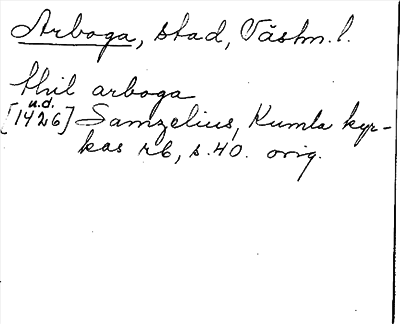 Arboga, stad, Västm. l.
thil arboga
u.d.
[1426] Samzelius, Kumla kyr-
kas rb, s. 40. orig.